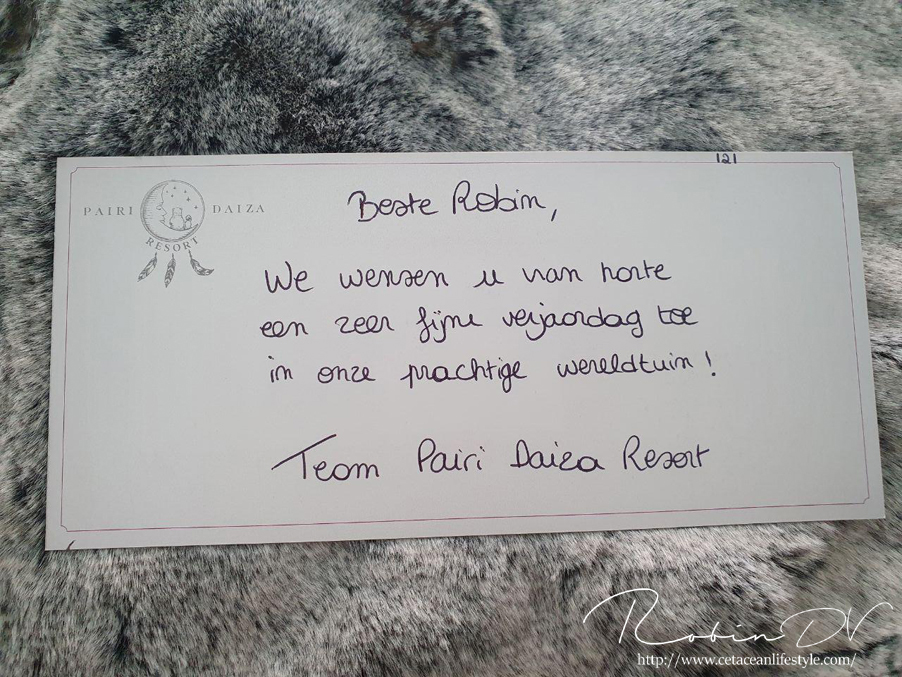 121
PAIRI DAIZA
RESORT
Beste Robin,
We wensen u van harte
een zeer fijne verjaardag toe
in onze prachtige wereldtuin!
Team Pairi Daiza Resort
Robin DV
http://www.cetaceanlifestyle.com/